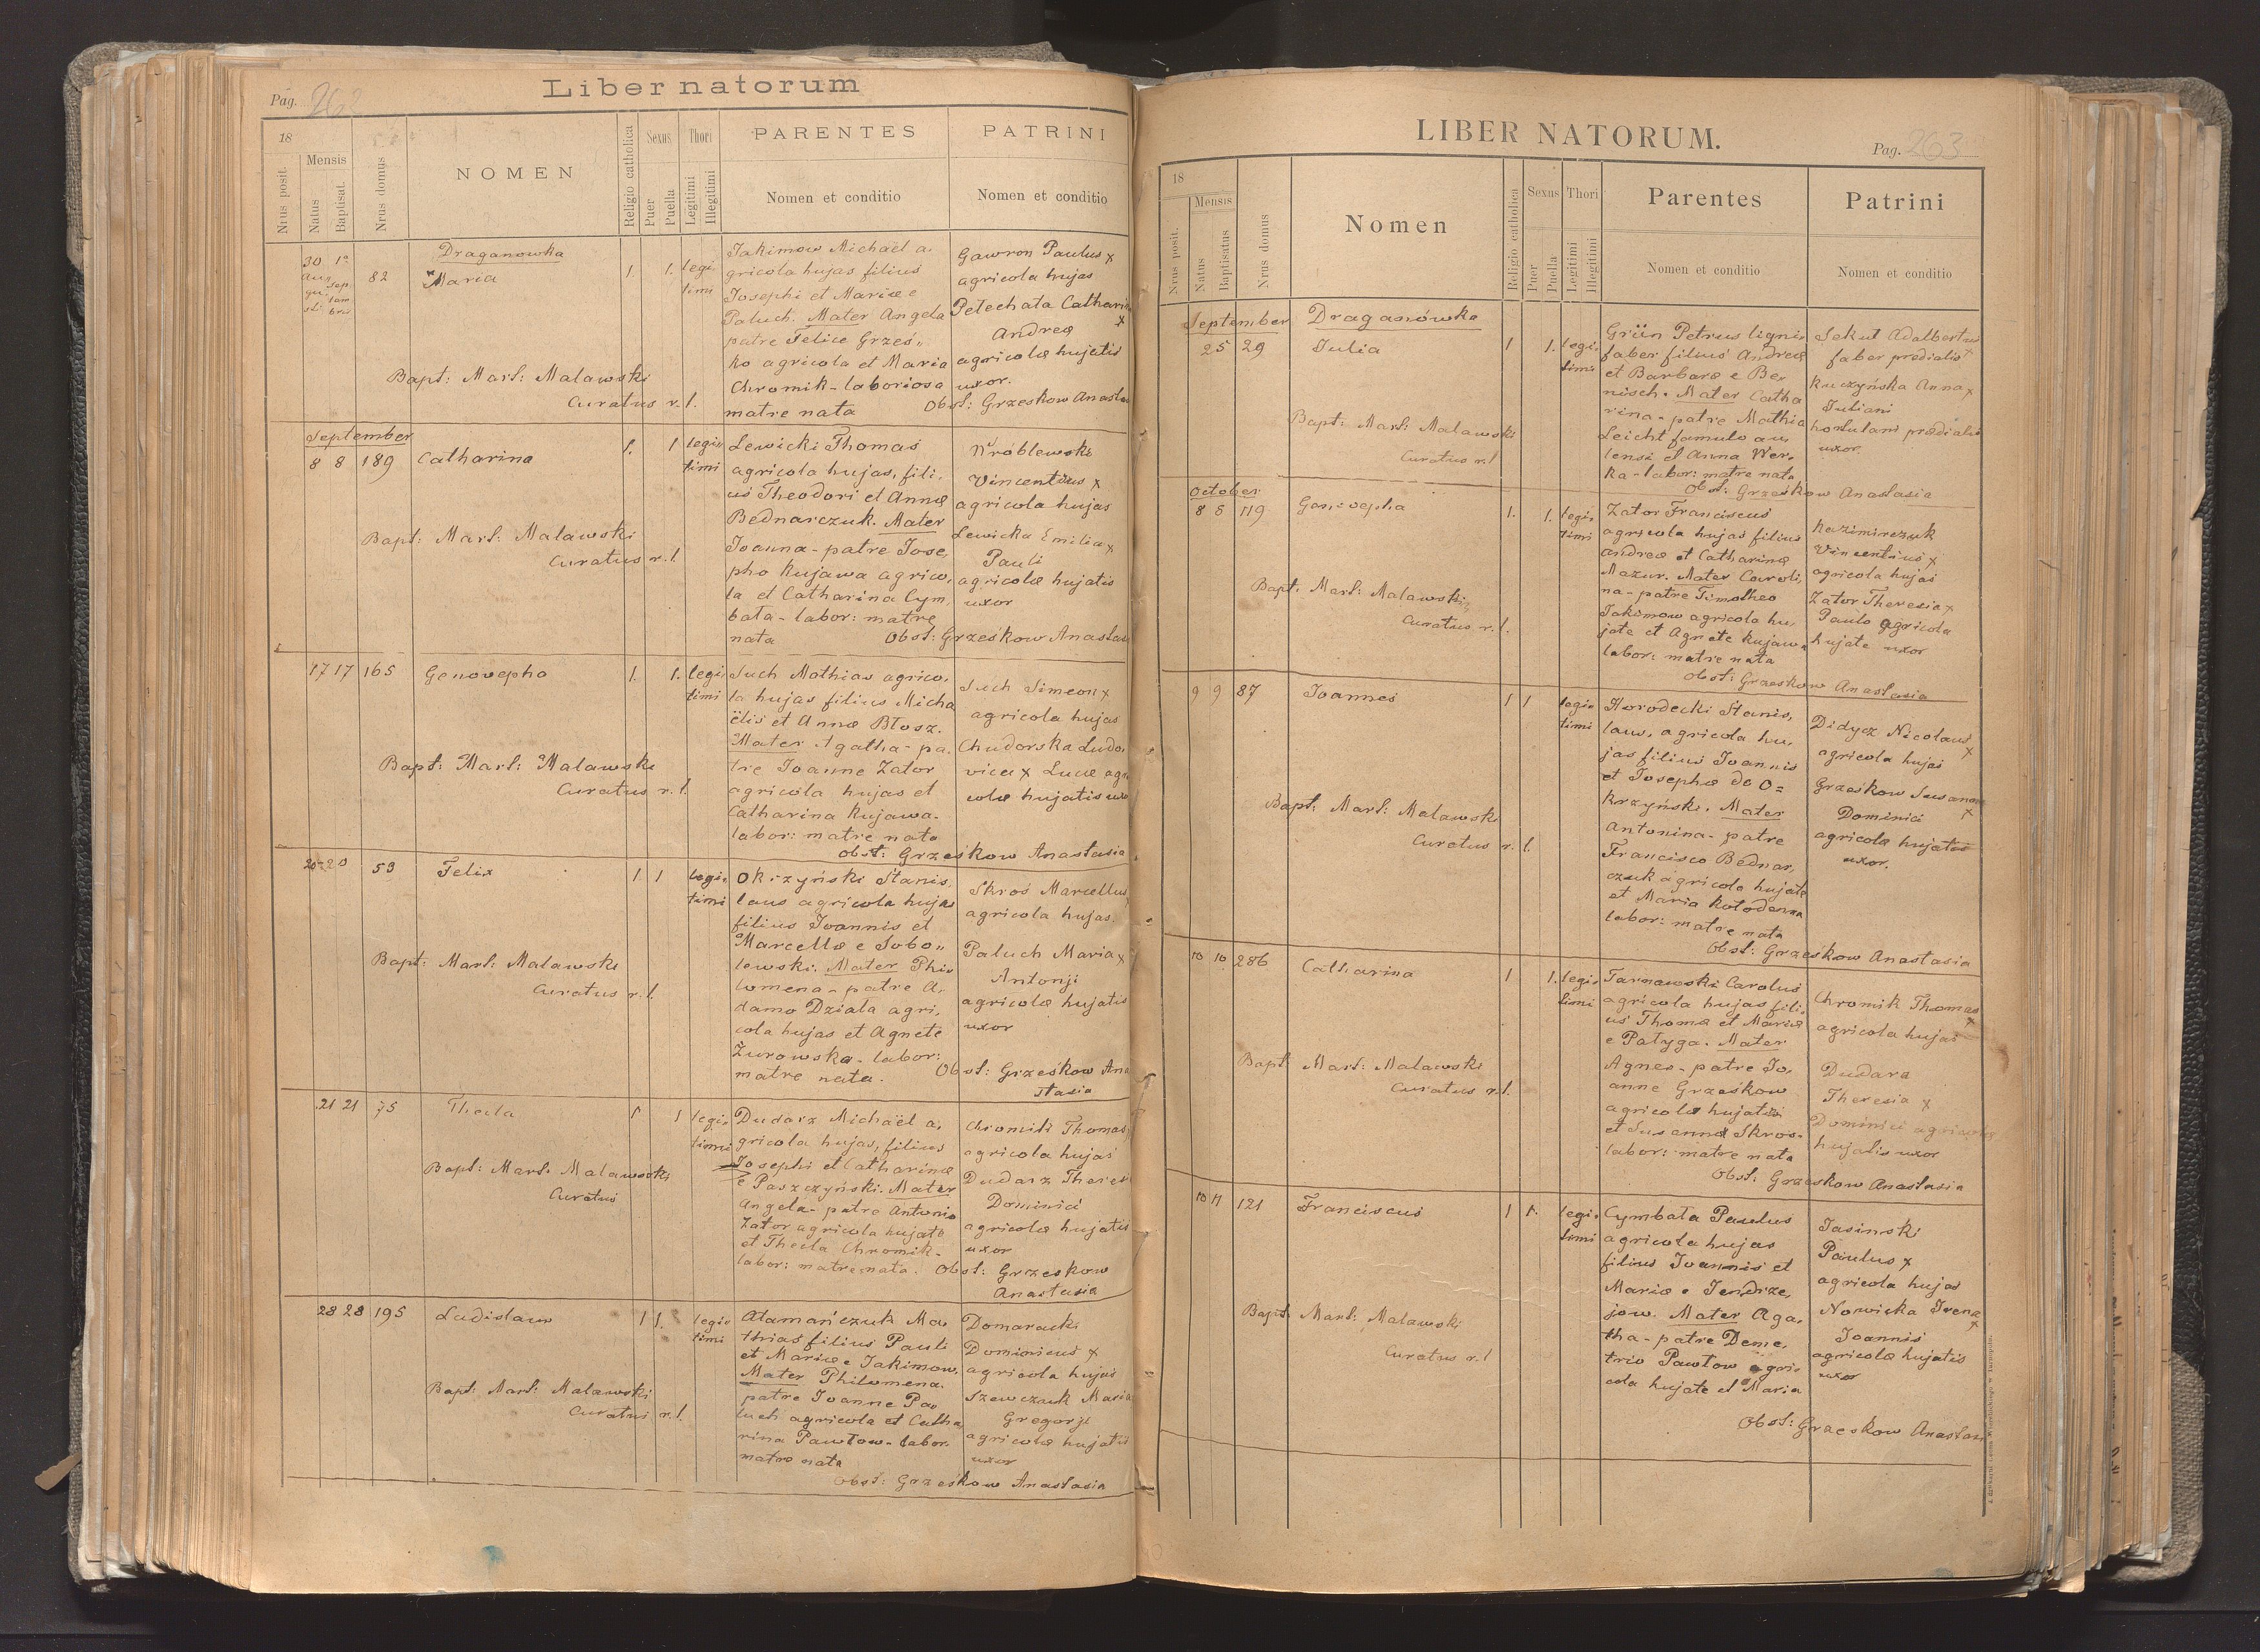 Liber natorum
Pag. 262
18
Mensis
Nrus posit.
Natus
Baptisat.
Nrus domus
NOMEN
Religio catholica
Sexus
Puer
Puella
Thori
Legitimi
Illegitimi
PARENTES
Nomen et conditio
PATRINI
Nomen et conditio
Draganowka
30 1a
Augusti Septembris
82
Maria
1. 1. legi
timi
Jakimow Michaël a.
gricola hujas filius
Josephi et Mariæ e
Paluch. Mater Angela
patre Felice Grześ„
ko agricola et Maria
Chromik - laboriosa
matre nata
Gawron Paulus x
agricola hujas
Petechata Catharin
x
Andreæ
agricolæ hujatis
uxor.
Obst: Grzeskow Anasta
Bapt: Marl: Malawski
Curatus r. l.
September
8 8 189 Catharina
1. 1 legi„
timi
Lewicki Thomas
agricola hujas, fili„
us Theodori et Annæ
Bednarczuk. Mater
Joanna - patre Jose„
pho Kujawa agrico„
la et Catharina Cym„
bata - labor: matre
nata
Wróblewski
Vincentius x
agricola hujas
Lewicka Emilia x
Pauli
agricolæ hujatis
uxor
Obst: Grześkow Anastas
Bapt: Marl: Malawski
Curatus r. l.
17 17 165 Genovepha
1. 1. legi„
timi
Such Mathias agrico„
la hujas filius Micha
ëlis et Annæ Błosz.
Mater Agatha - pa„
tre Joanne Zator
agricola hujas et
Catharina Kujawa -
labor: matre nata
Such Simeon x
agricola hujas
Chudorska Ludo„
vica x Lucæ agri
colæ hujatis uxo
Obst: Grześkow Anastasia
Bapt: Marl: Malawski
Curatus r. l.
20 20 59 Felix
1. 1 legi„
timi
Okrzyński Stanis„
laus agricola hujas
filius Joannis et
Marcellæ e Sobo„
lewski. Mater Phi„
lomena - patre A„
damo Działa agri„
cola hujas et Agnete
Żurowska - labor:
matre nata.
Skroś Marcellus
agricola hujas.
Paluch Maria x
Antonji
agricolæ hujatis
uxor
Obst: Grześkow Ana
stasia
Bapt: Marl: Malawski
Curatus r. l.
21 21 75 Thecla
1 1 legi„
timi
Dudarz Michaël a„
gricola hujas, filius
Josephi et Catharinæ
e Paszczyński. Mater
Angela - patre Antonio
Zator agricola hujate
et Thecla Chromik -
labor: matre nata.
Chromik Thomas
agricola hujas
Dudarz Theres
Dominici
agricolæ hujatis
uxor
Obst: Grzeskow
Anastasia
Bapt: Marl: Malawski
Curatus
28 28 195 Ladislaus
1 1. legi„
timi
Atamańczuk Ma„
thias filius Pauli
et Mariæ e Jakimow.
Mater Philomena.
patre Joanne Pa„
luch agricola et Catha
rina Pawłow - labor.
matre nata
Domaracki
Dominicus x
agricola hujas
Szewczuk Maria
Gregorji
agricolæ hujatis
uxor
Obst: Grześkow Anastasia
Bapt: Marl: Malawski
Curatus r. l.
LIBER NATORUM.
Pag. 263
18
Mensis
Nrus posit.
Natus
Baptisatus
Nrus domus
Nomen
Religio catholica
Sexus
Puer
Puella
Thori
Legitimi
Illegitimi
Parentes
Nomen et conditio
Patrini
Nomen et conditio
September Draganówka
25 29 Julia
1 1. legi„
timi
Grün Petrus ligni„
faber filius Andreæ
et Barbaræ e Be„
nisch. Mater Catha
rina - patre Mathia
Leicht famulo au„
lensi et Anna Wer„
ka - labor: matre nata
Sekut Adalbertus
faber prædialis x
Kuczyńska Anna x
Juliani
hortulani prædialis
uxor
Obst: Grześkow Anastasia
Bapt: Marl: Malawski
Curatus r. l
October
8 8 119 Genovepha
1. 1. legi„
timi
Zator Franciscus
agricola hujas filius
Andreæ et Catharinæ
Mazur. Mater Caroli„
na - patre Timotheo
Jakimow agricola hu„
jate et Agnete Kujawa
labor: matre nata
Kazimirczuk
Vincentius x
agricola hujas
Zator Theresia x
Paulo agricola
hujate uxor
Obst: Grzeskow Anastasia
Bapt: Marl: Malawski
Curatus r. l.
9 9 87 Joannes
1 1 legi„
timi
Horodecki Stanis„
laus, agricola hu„
jas filius Joannis
et Josephæ de O=
krzyński. Mater
Antonina - patre
Francisco Bednar„
czuk agricola hujate
et Maria Kołodenna
labor: matre nata
Didycz Nicolaus
x
agricola hujas
Grześkow Susanna
x
Dominici
agricolæ hujatis
uxor.
Obst: Grześkow Anastasia
Bapt: Marl: Malawski
Curatus r. l.
10 10 286 Catharina
1 1. legi„
timi
Tarnawski Carolus
agricola hujas fili„
us Thomæ et Mariæ
e Patyga. Mater
Agnes - patre Jo„
anne Grześkow
agricolæ hujatis
et Susanna Skros -
labor: matre nata
Chromik Thomas
x
agricola hujas
Dudara
Theresia x
Dominici agricolæ
hujatis uxor
Obst: Grzeskow Anastasia
Bapt: Marl: Malawski
Curatus r. l.
10 11 121 Franciscus
1 1. legi„
timi
Cymbała Paulus
agricola hujas
filius Joannis et
Mariæ e Jendrze„
jow. Mater Aga„
tha - patre Deme„
trio Pawłow agri„
cola hujate et Maria
Jasinski
Paulus x
agricola hujas
Nowicka Irena
x
Joannis
agricolæ hujatis
uxor
Obst: Grzeskow Anastasi
Bapt: Marl: Malawski
Curatus r. l